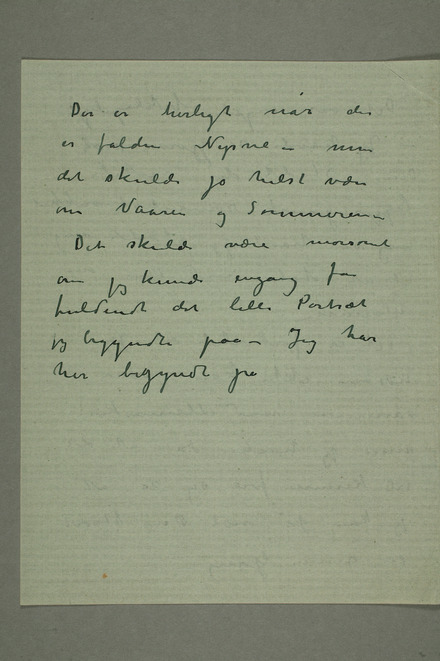 Der er herligt når der
er falden Nysne – men
det skulde jo helst være
om Vaaren og Sommeren –
Det skulde være morsomt
om jeg kunde engang få
fuldendt det lille Portræt
jeg begyndte paa – Jeg har
her begyndt på